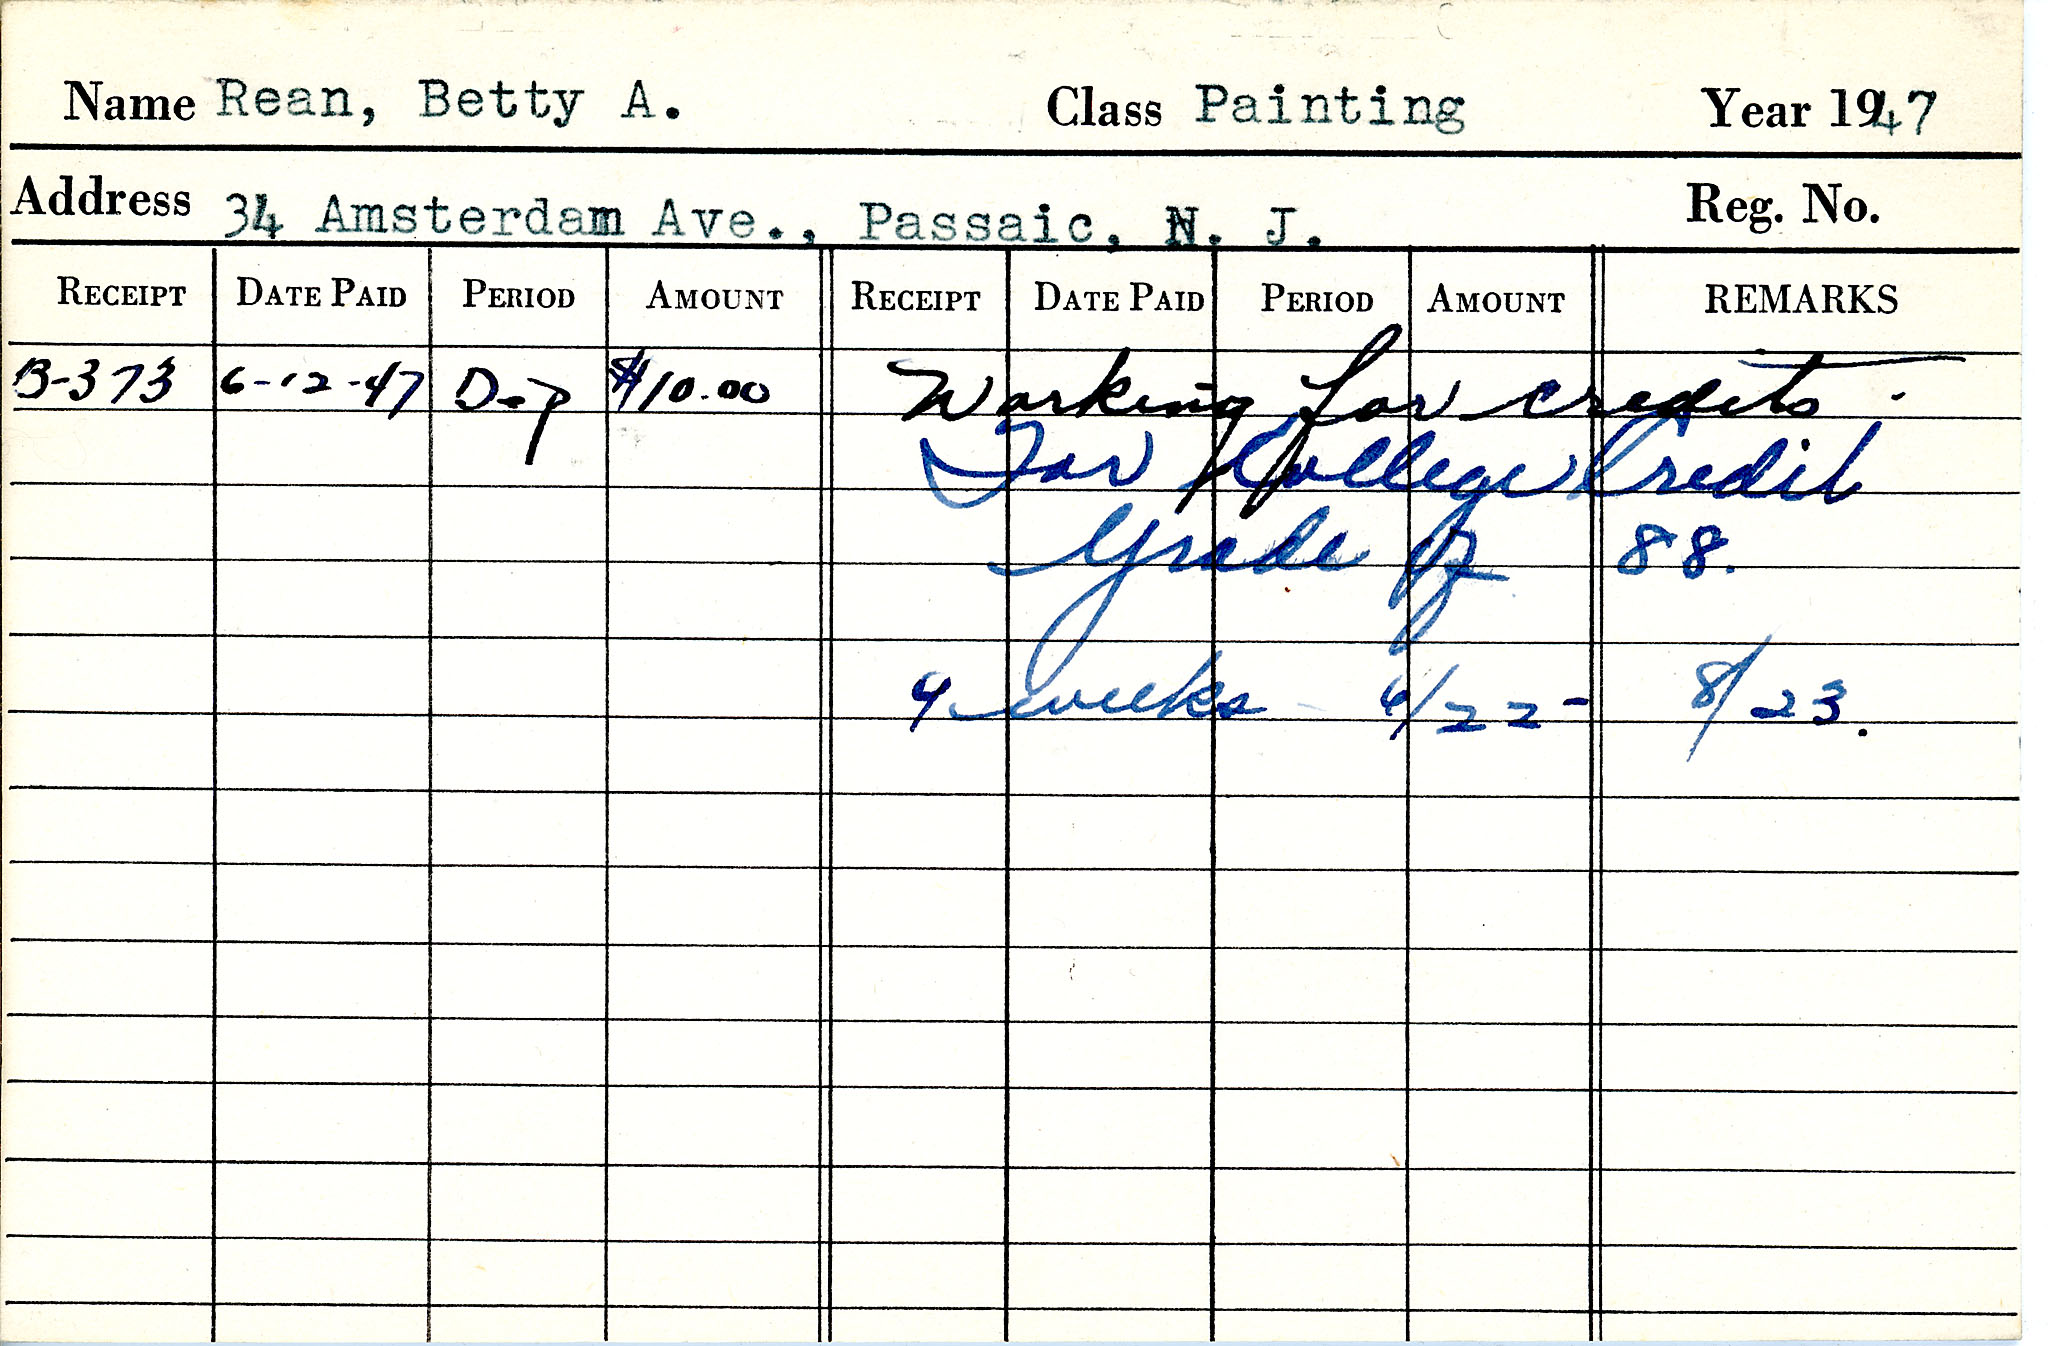 Name Rean, Betty A. Class Painting Year 1947
Address 34 Amsterdam Ave., Passaic, N. J. Reg. No.
RECEIPT DATE PAID PERIOD AMOUNT RECEIPT DATE PAID PERIOD AMOUNT REMARKS
B-373 6-12-47 Dep $10.00 Working for credits.
For College Credit
Grade of 88.
weeks - 6/22 - 8/23.